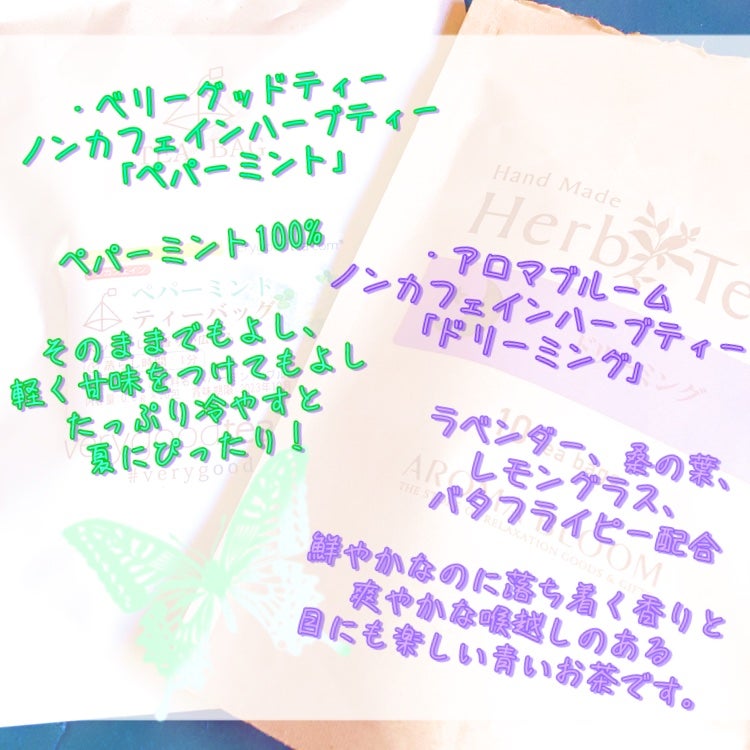 ・ベリーグッドティー
ノンカフェインハーブティー
「ペパーミント」
ペパーミント100%
そのままでもよし、
軽く甘味をつけてもよし
たっぷり冷やすと
夏にぴったり！
TEA BAG
ペパーミント
ティーバッグ
verygoodtea
#verygood
Hand Made
Herb Te
・アロマブルーム
ノンカフェインハーブティー
「ドリーミング」
ドリーミング
10 tea bags
ラベンダー、桑の葉、
レモングラス、
バタフライピー配合
AROMA BLOOM
THE STORE OF RELAXATION GOODS & GIFT
鮮やかなのに落ち着く香りと
爽やかな喉越しのある
目にも楽しい青いお茶です。